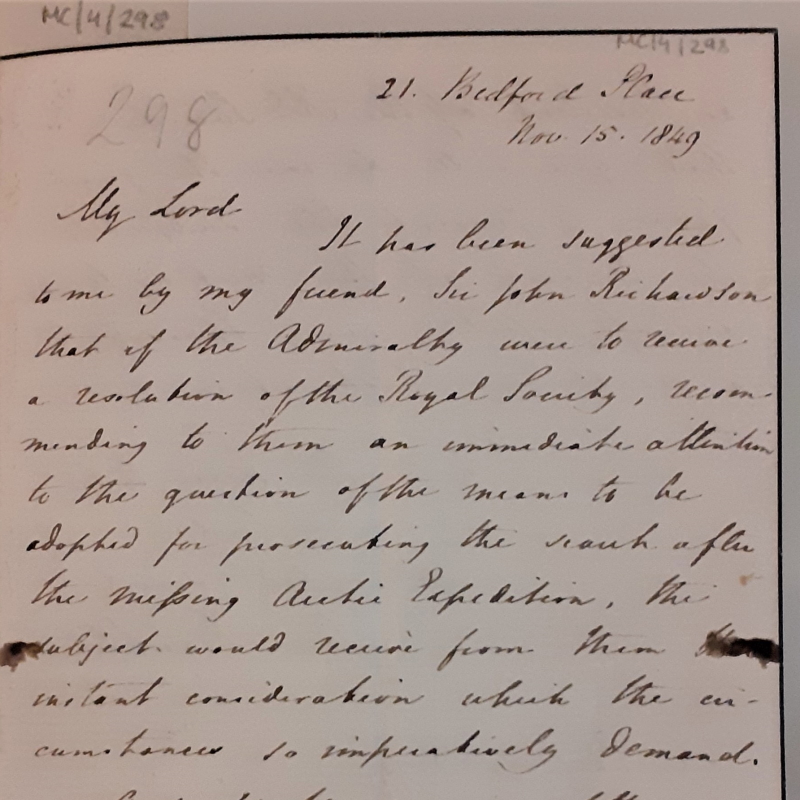 MC/4/298
MC/4/298
298
21. Bedford Place
Nov. 15. 1849
My Lord
It has been suggested
to me by my friend, Sir John Richardson
that if the Admiralty were to receive
a resolution of the Royal Society, recom-
mending to them an immediate attention
to the question of the means to be
adopted for prosecuting the search after
the missing Arctic Expedition, the
subject would receive from them
instant consideration which the cir-
cumstances so imperatively demand.